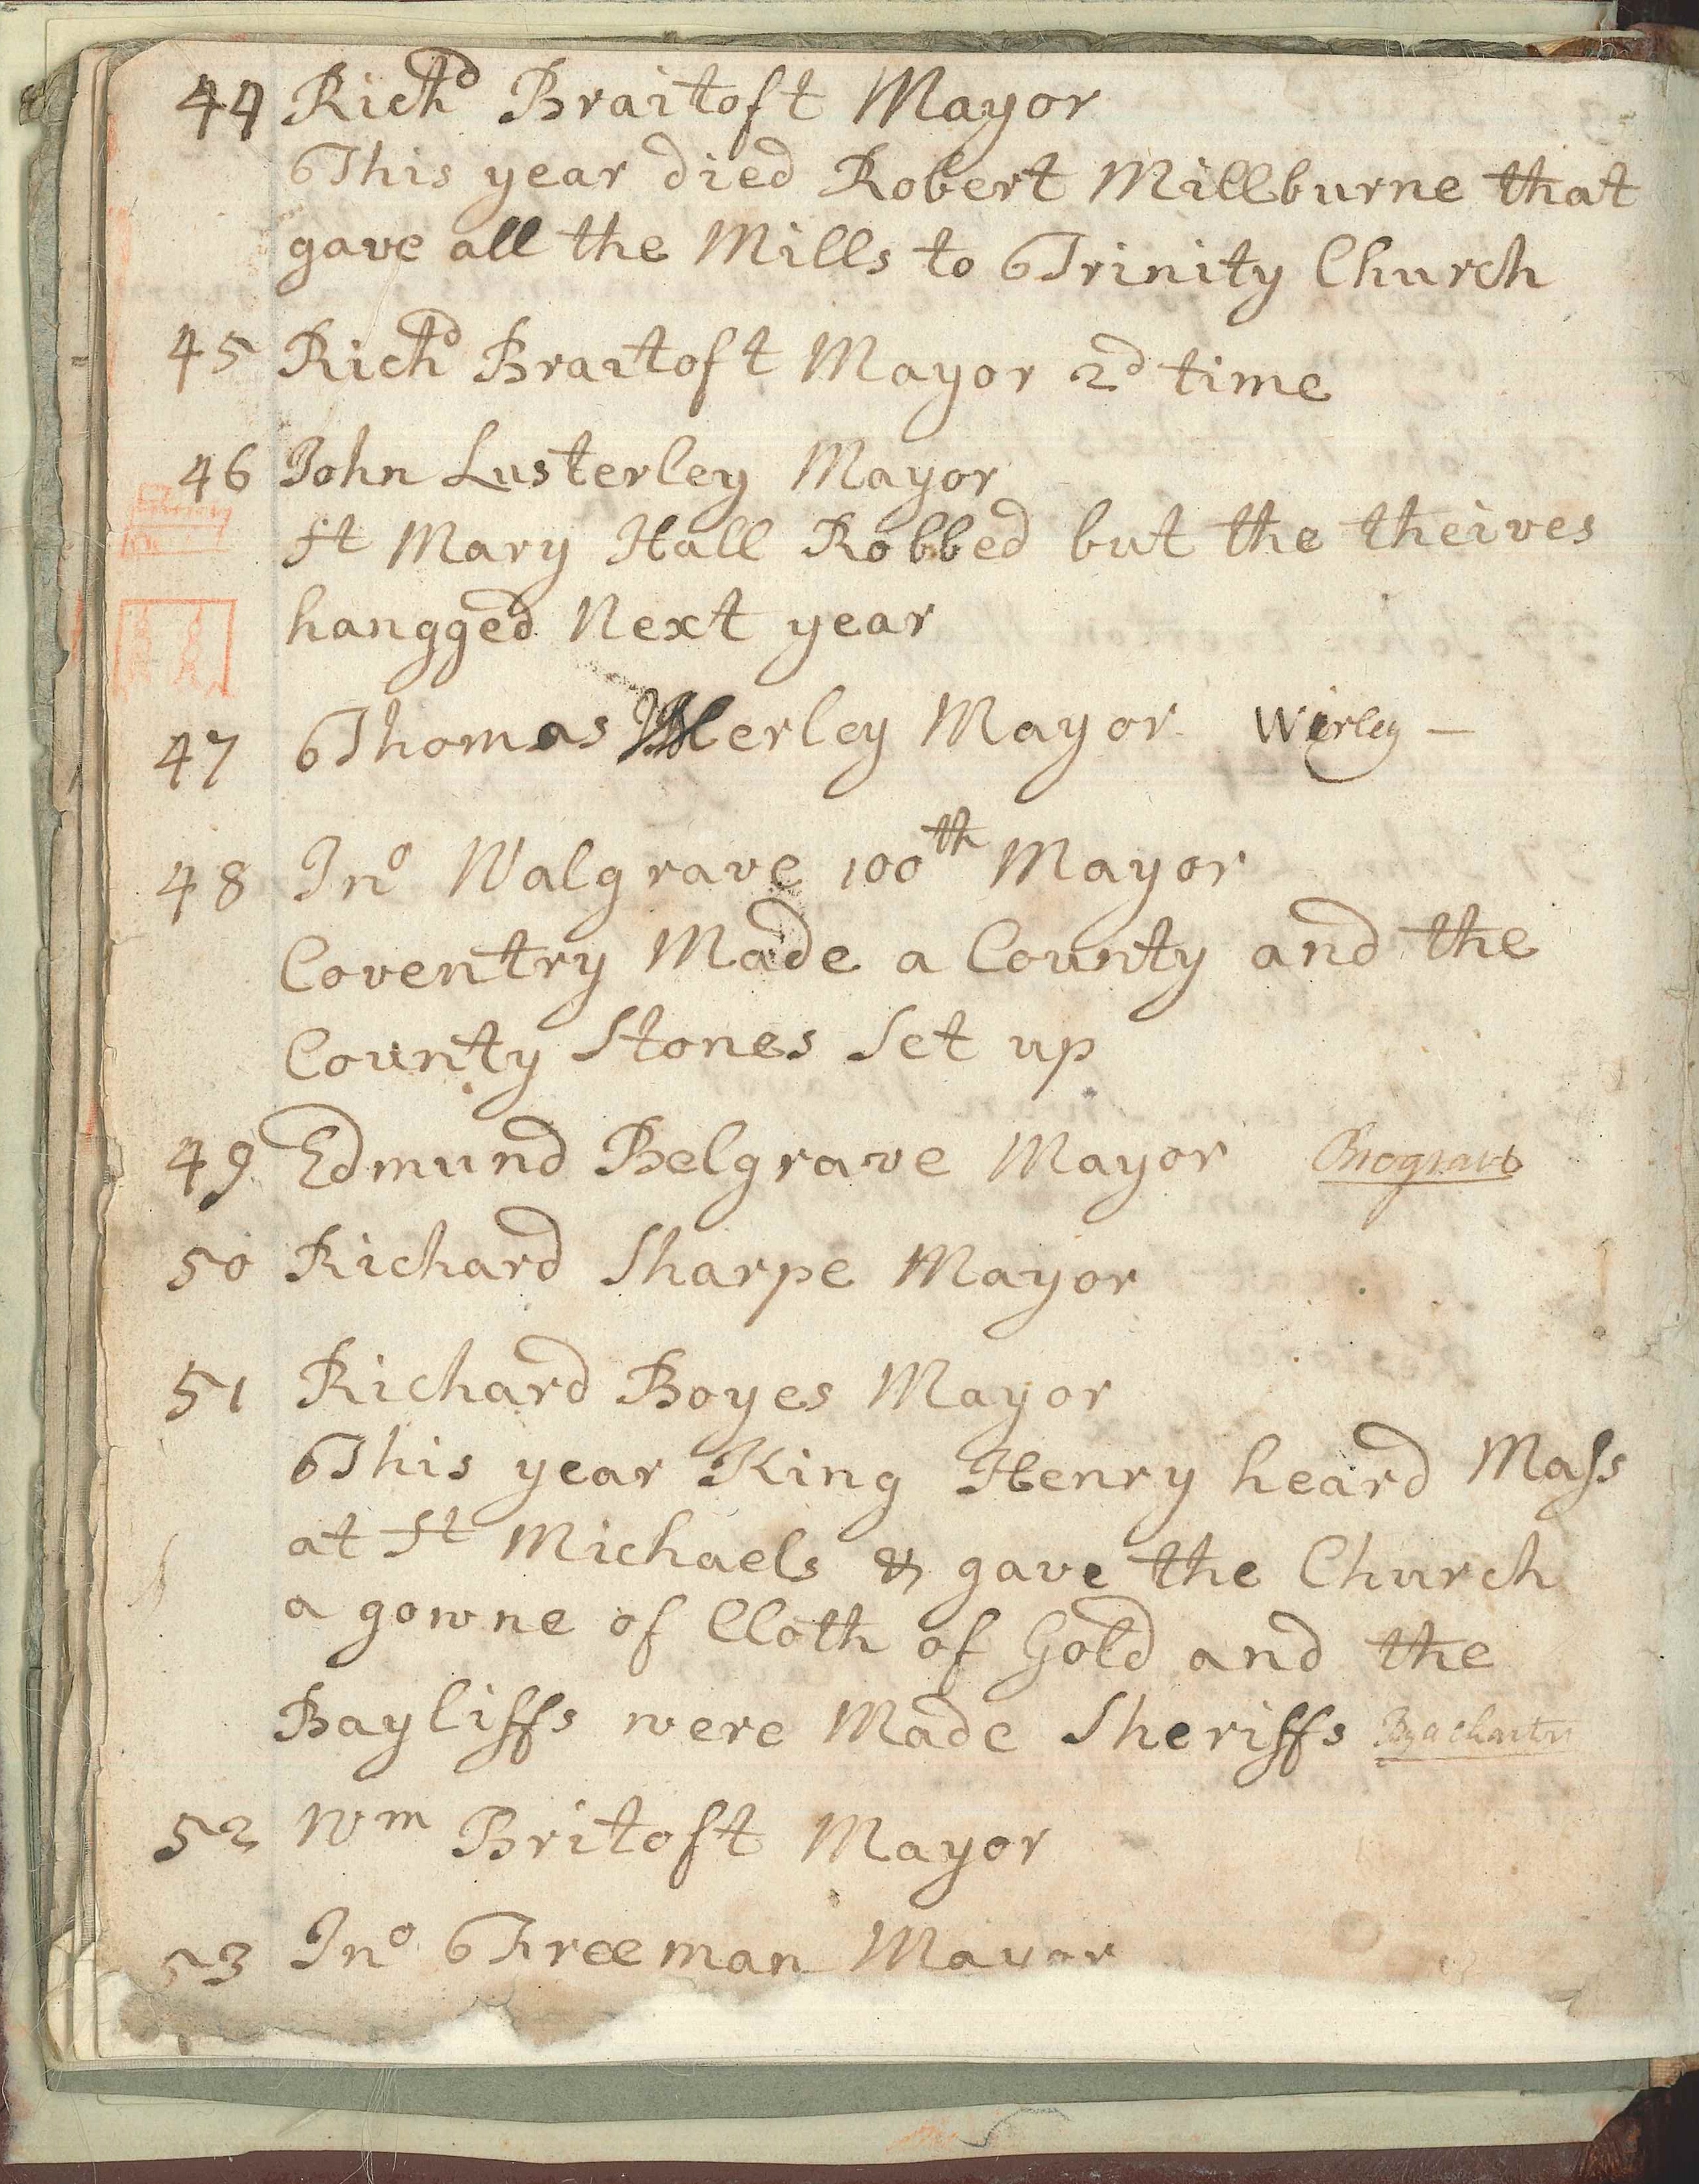 44 Richd Braitoft Mayor
This year died Robert Millburne that
gave all the Mills to Trinity Church
45 Richd Braitoft Mayor 2d time
46 John Lusterley Mayor
St Mary Hall Robbed but the theives
hangged Next year
47 Thomas Werley Mayor Wirley —
48 Jno Walgrave 100th Mayor
Coventry Made a County and the
County Stones Set up
49 Edmund Belgrave Mayor Brograve
50 Richard Sharpe Mayor
51 Richard Boyes Mayor
This year King Henry heard Mass
at St Michaels & gave the Church
a gowne of Cloth of Gold and the
Bayliffs were Made Sheriffs By a Charter
52 Wm Britoft Mayor
53 Jno Freeman Mayor